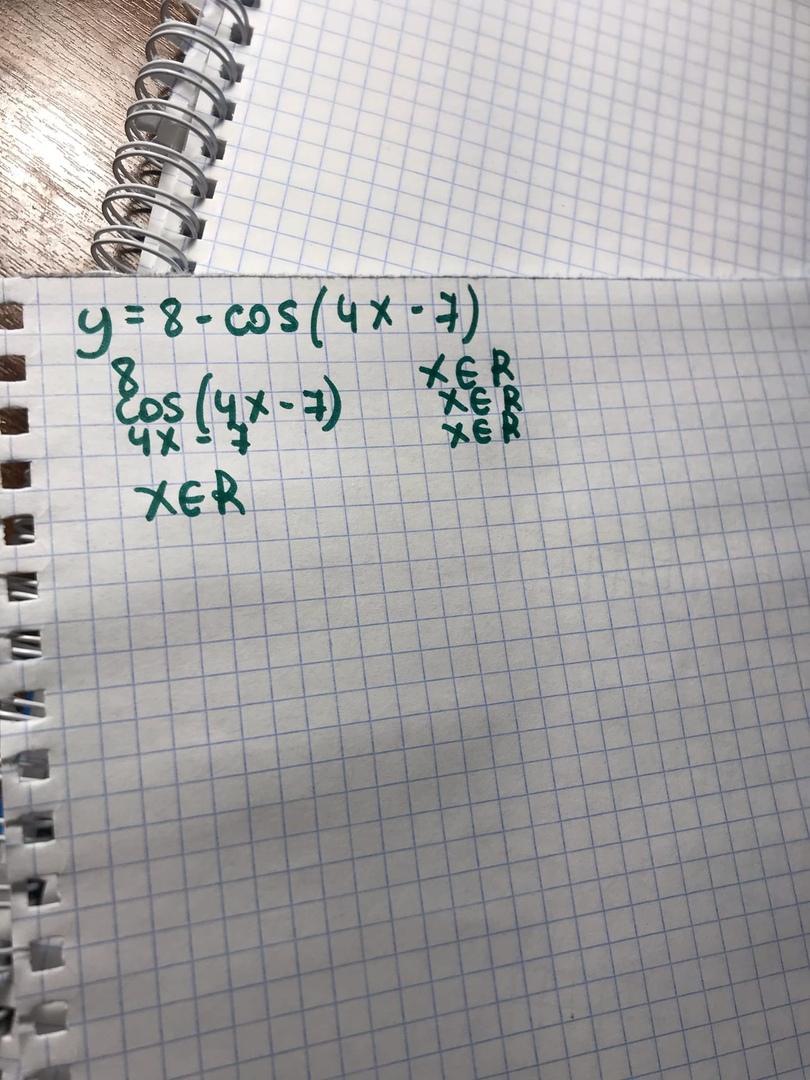 y = 8 - cos(4x - 7)
8 x∈R
cos(4x - 7) x∈R
4x - 7 x∈R
x∈R